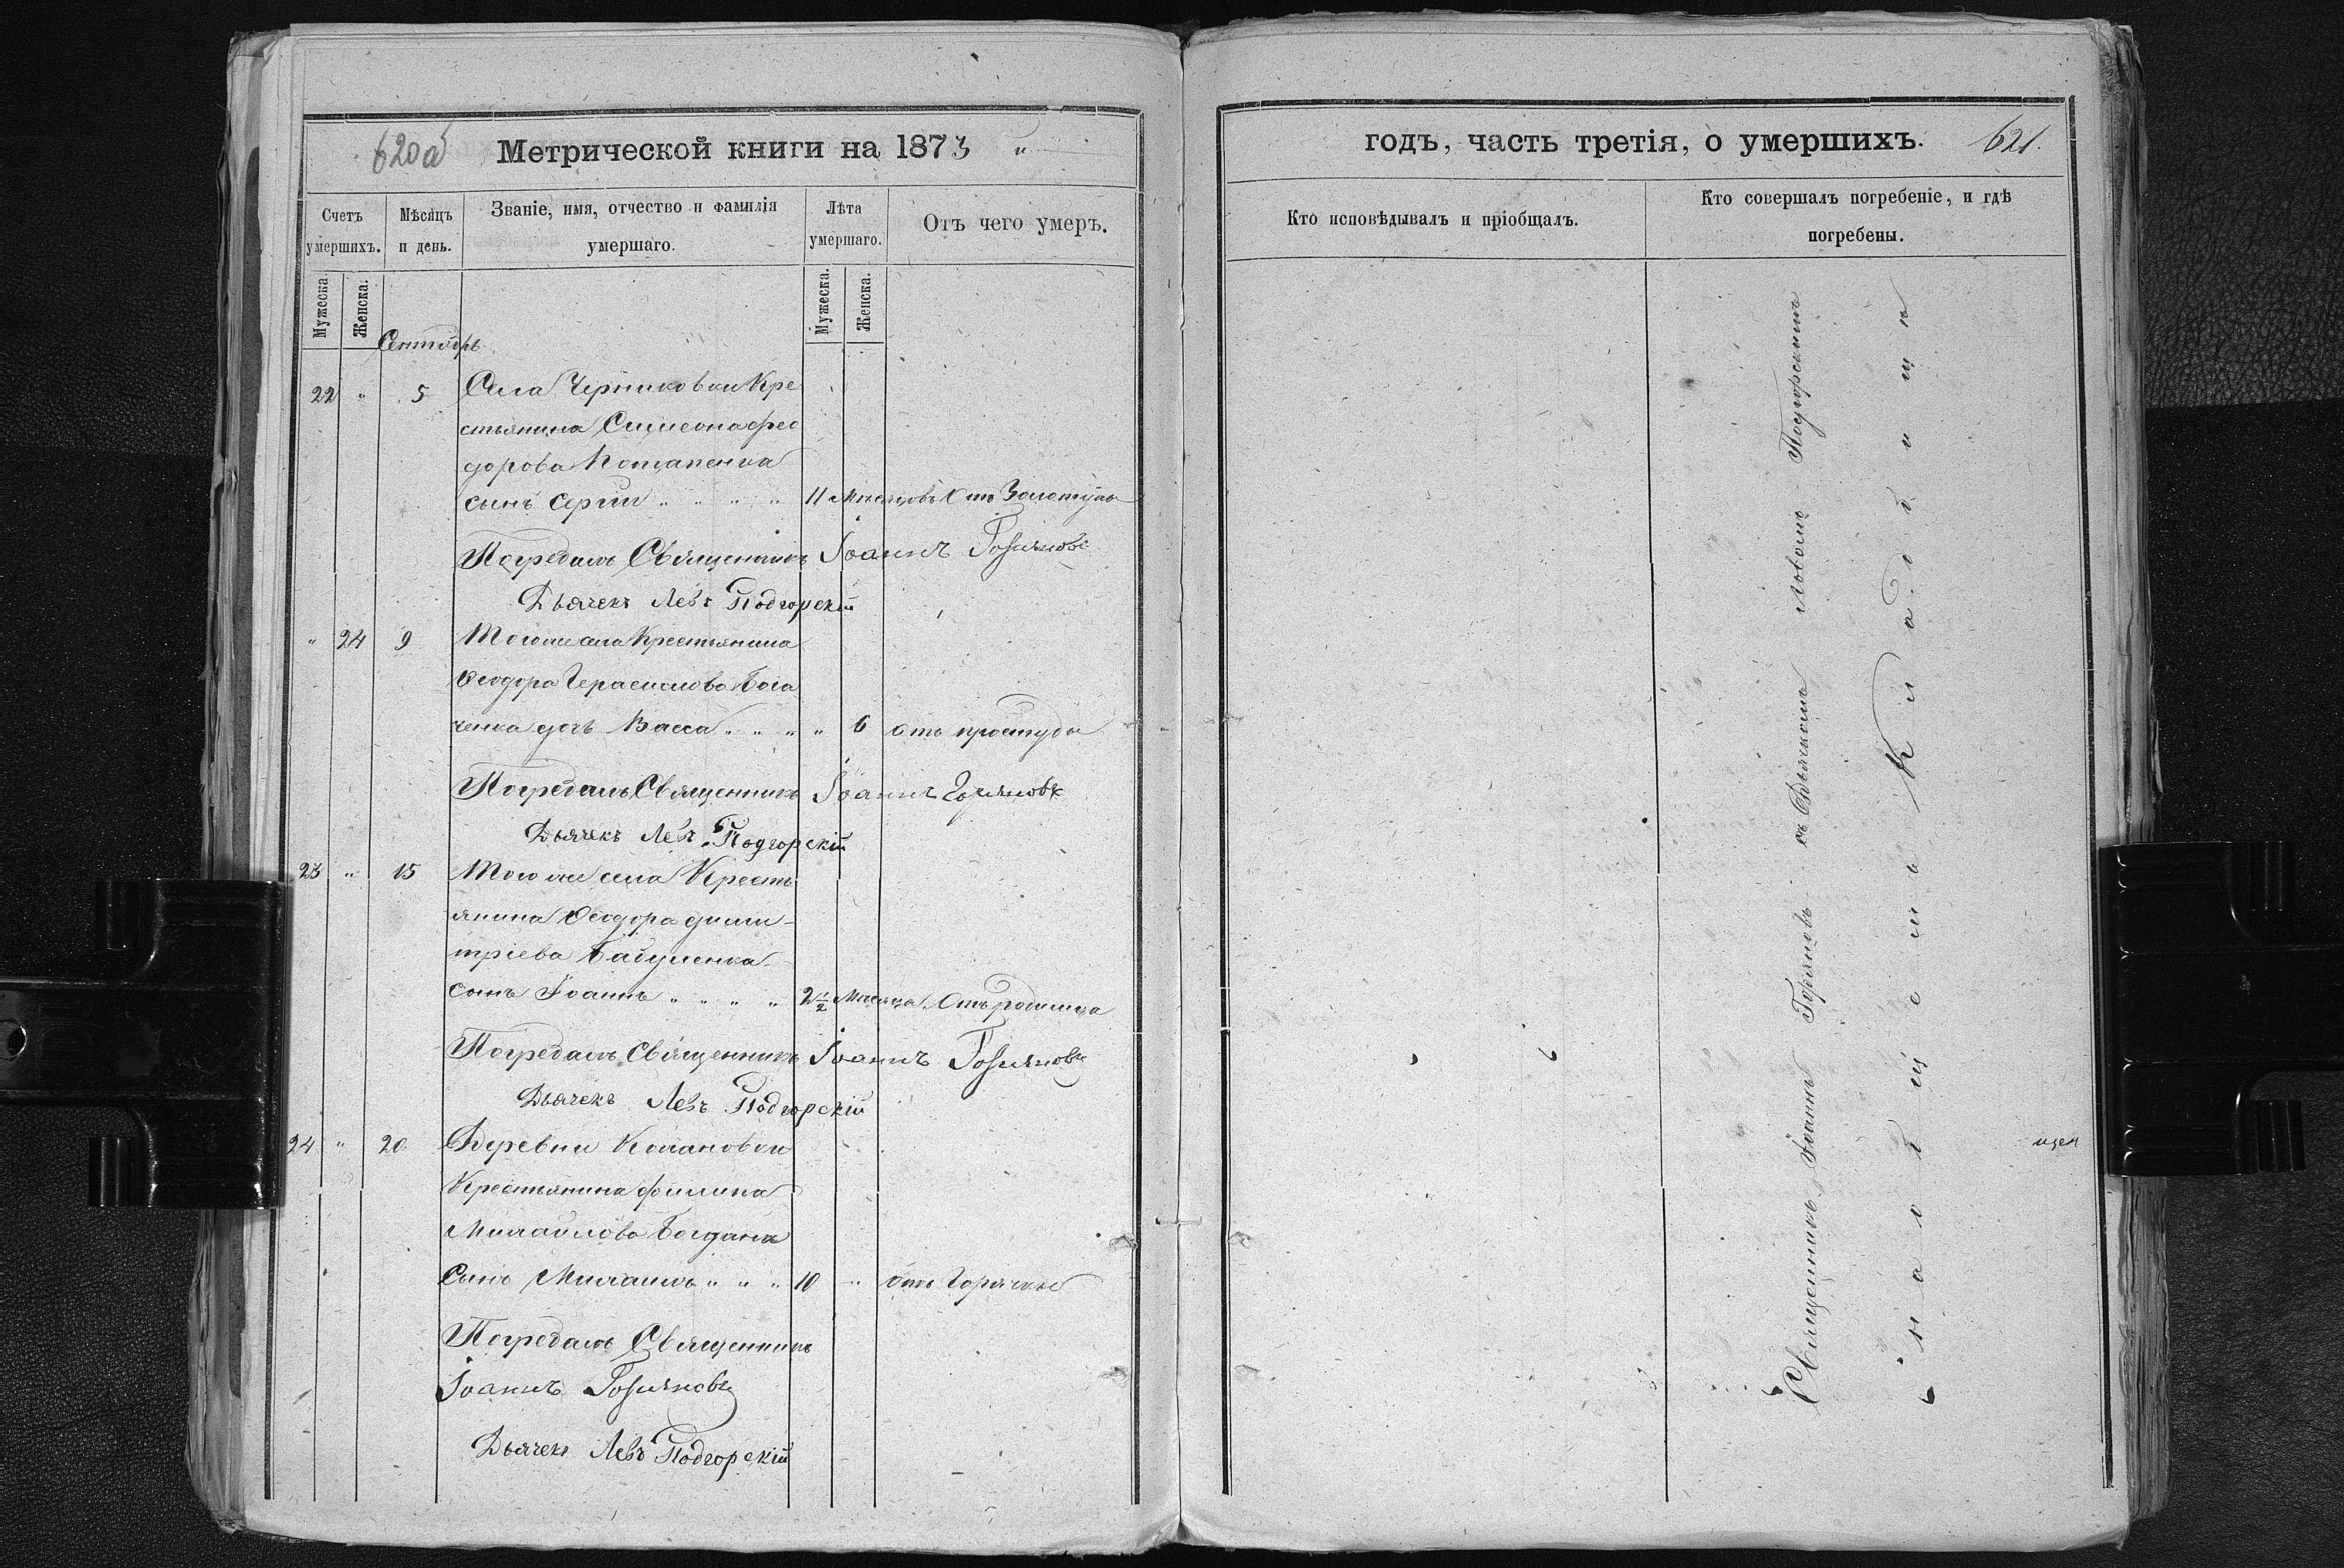 620об
Метрической книги на 1873 "
Счетъ умершихъ.
Мѣсяцъ и день.
Званіе, имя, отчество и фамилія умершаго.
Лѣта умершаго.
Отъ чего умеръ.
Мужеска.
Женска.
Мужеска.
Женска.
Сентябрь
22 " 5 Села Черниковки Кре
стьянина Симеона фео
дорова Потапенка
сынъ Сергий " " " " 11 Месяцовъ Отъ Золотухи
Погребалъ Священникъ Іоаннъ Горяновъ
Дьячекъ Левъ Подгорскій
" 24 9 Того же села Крестьянина
Ѳеодора Герасимова
ченка дочь Васса " " " " 6 отъ простуды
Погребалъ Священникъ Іоаннъ Горяновъ
Дьячекъ Левъ Подгорскій
23 " 15 Того же села Кресть
янина Ѳеодора дими-
тріева Бабушенка
сынъ Іоаннъ " " " " 2½ Месяца Отъ родимца
Погребалъ Священникъ Іоаннъ Горяновъ
Дьячекъ Левъ Подгорскій
24 " 20 Деревни
Крестьянина филипа
Михайлова Богдана
Сынъ Михаилъ " " " 10 " отъ Горячки
Погребалъ Священникъ
Іоаннъ Горяновъ
Дьячекъ Левъ Подгорскій
годъ, часть третія, о умершихъ.
621.
Кто исповѣдывалъ и пріобщалъ.
Кто совершалъ погребеніе, и гдѣ погребены.
Священникъ Іоаннъ Горяновъ съ Дьячкомъ Львомъ Подгорскимъ
на общемъ Кладбищѣ